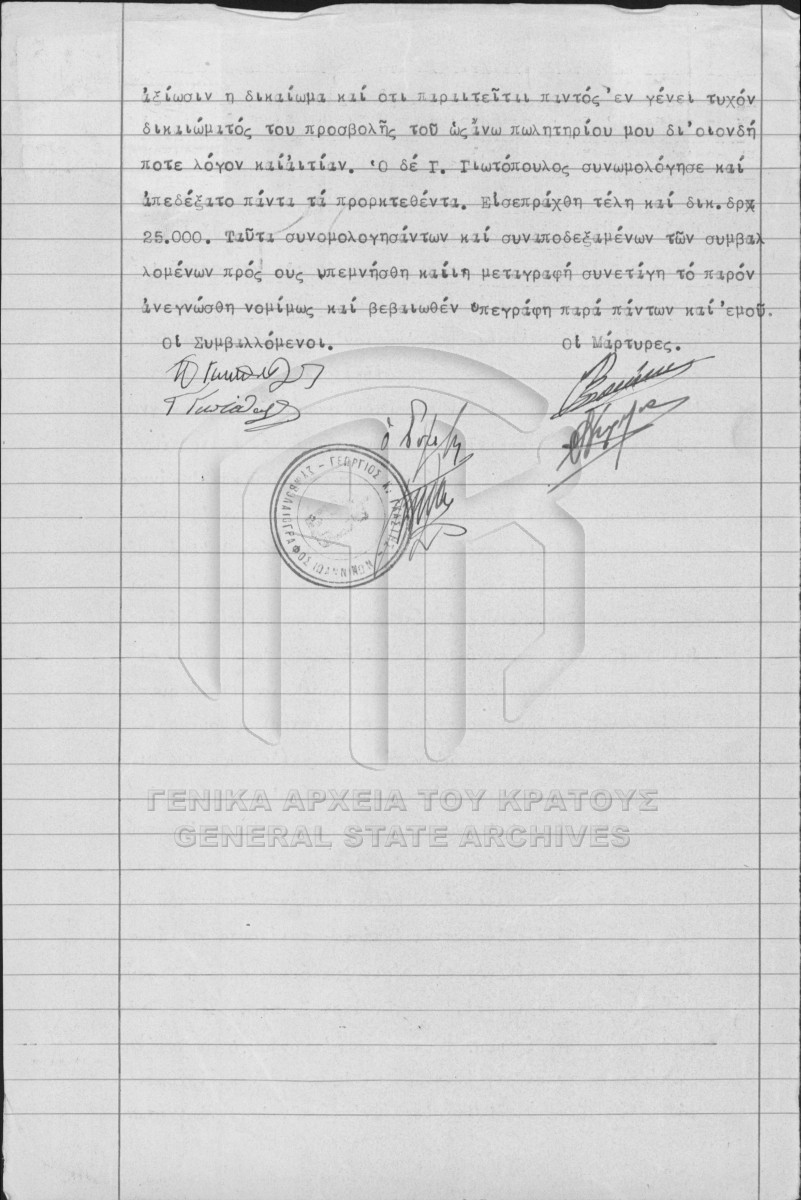 ἀξίωσιν η δικαίωμα καί οτι παραιτεῖται παντός ἐν γένει τυχόν
δικαιώματός του προσβολῆς τοῦ ὡςἄνω πωλητηρίου μου δι'οιονδή
ποτε λόγον καίαἰτίαν. Ὁ δέ Γ. Γιωτόπουλος συνωμολόγησε καί
ἀπεδέξατο πάντα τά προρκτεθέντα. Εἰσεπράχθη τέλη καί δικ.δρχ
25.000. Ταῦτα συνομολογησάντων καί συναποδεξαμένων τῶν συμβαλ
λομένων πρός ους υπεμνήσθη καίιη μεταγραφή συνετάγη τό παρόν
ἀνεγνώσθη νομίμως καί βεβαιωθέν ὑπεγράφη παρά πάντων καί ἐμοῦ.
Οἱ Συμβαλλόμενοι. Οἱ Μάρτυρες.
ΣΥΜΒΟΛΑΙΟΓΡΑΦΟΣ ΙΩΑΝΝΙΝΩΝ - ΓΕΩΡΓΙΟΣ Κ.
ΓΕΝΙΚΑ ΑΡΧΕΙΑ ΤΟΥ ΚΡΑΤΟΥΣ
GENERAL STATE ARCHIVES